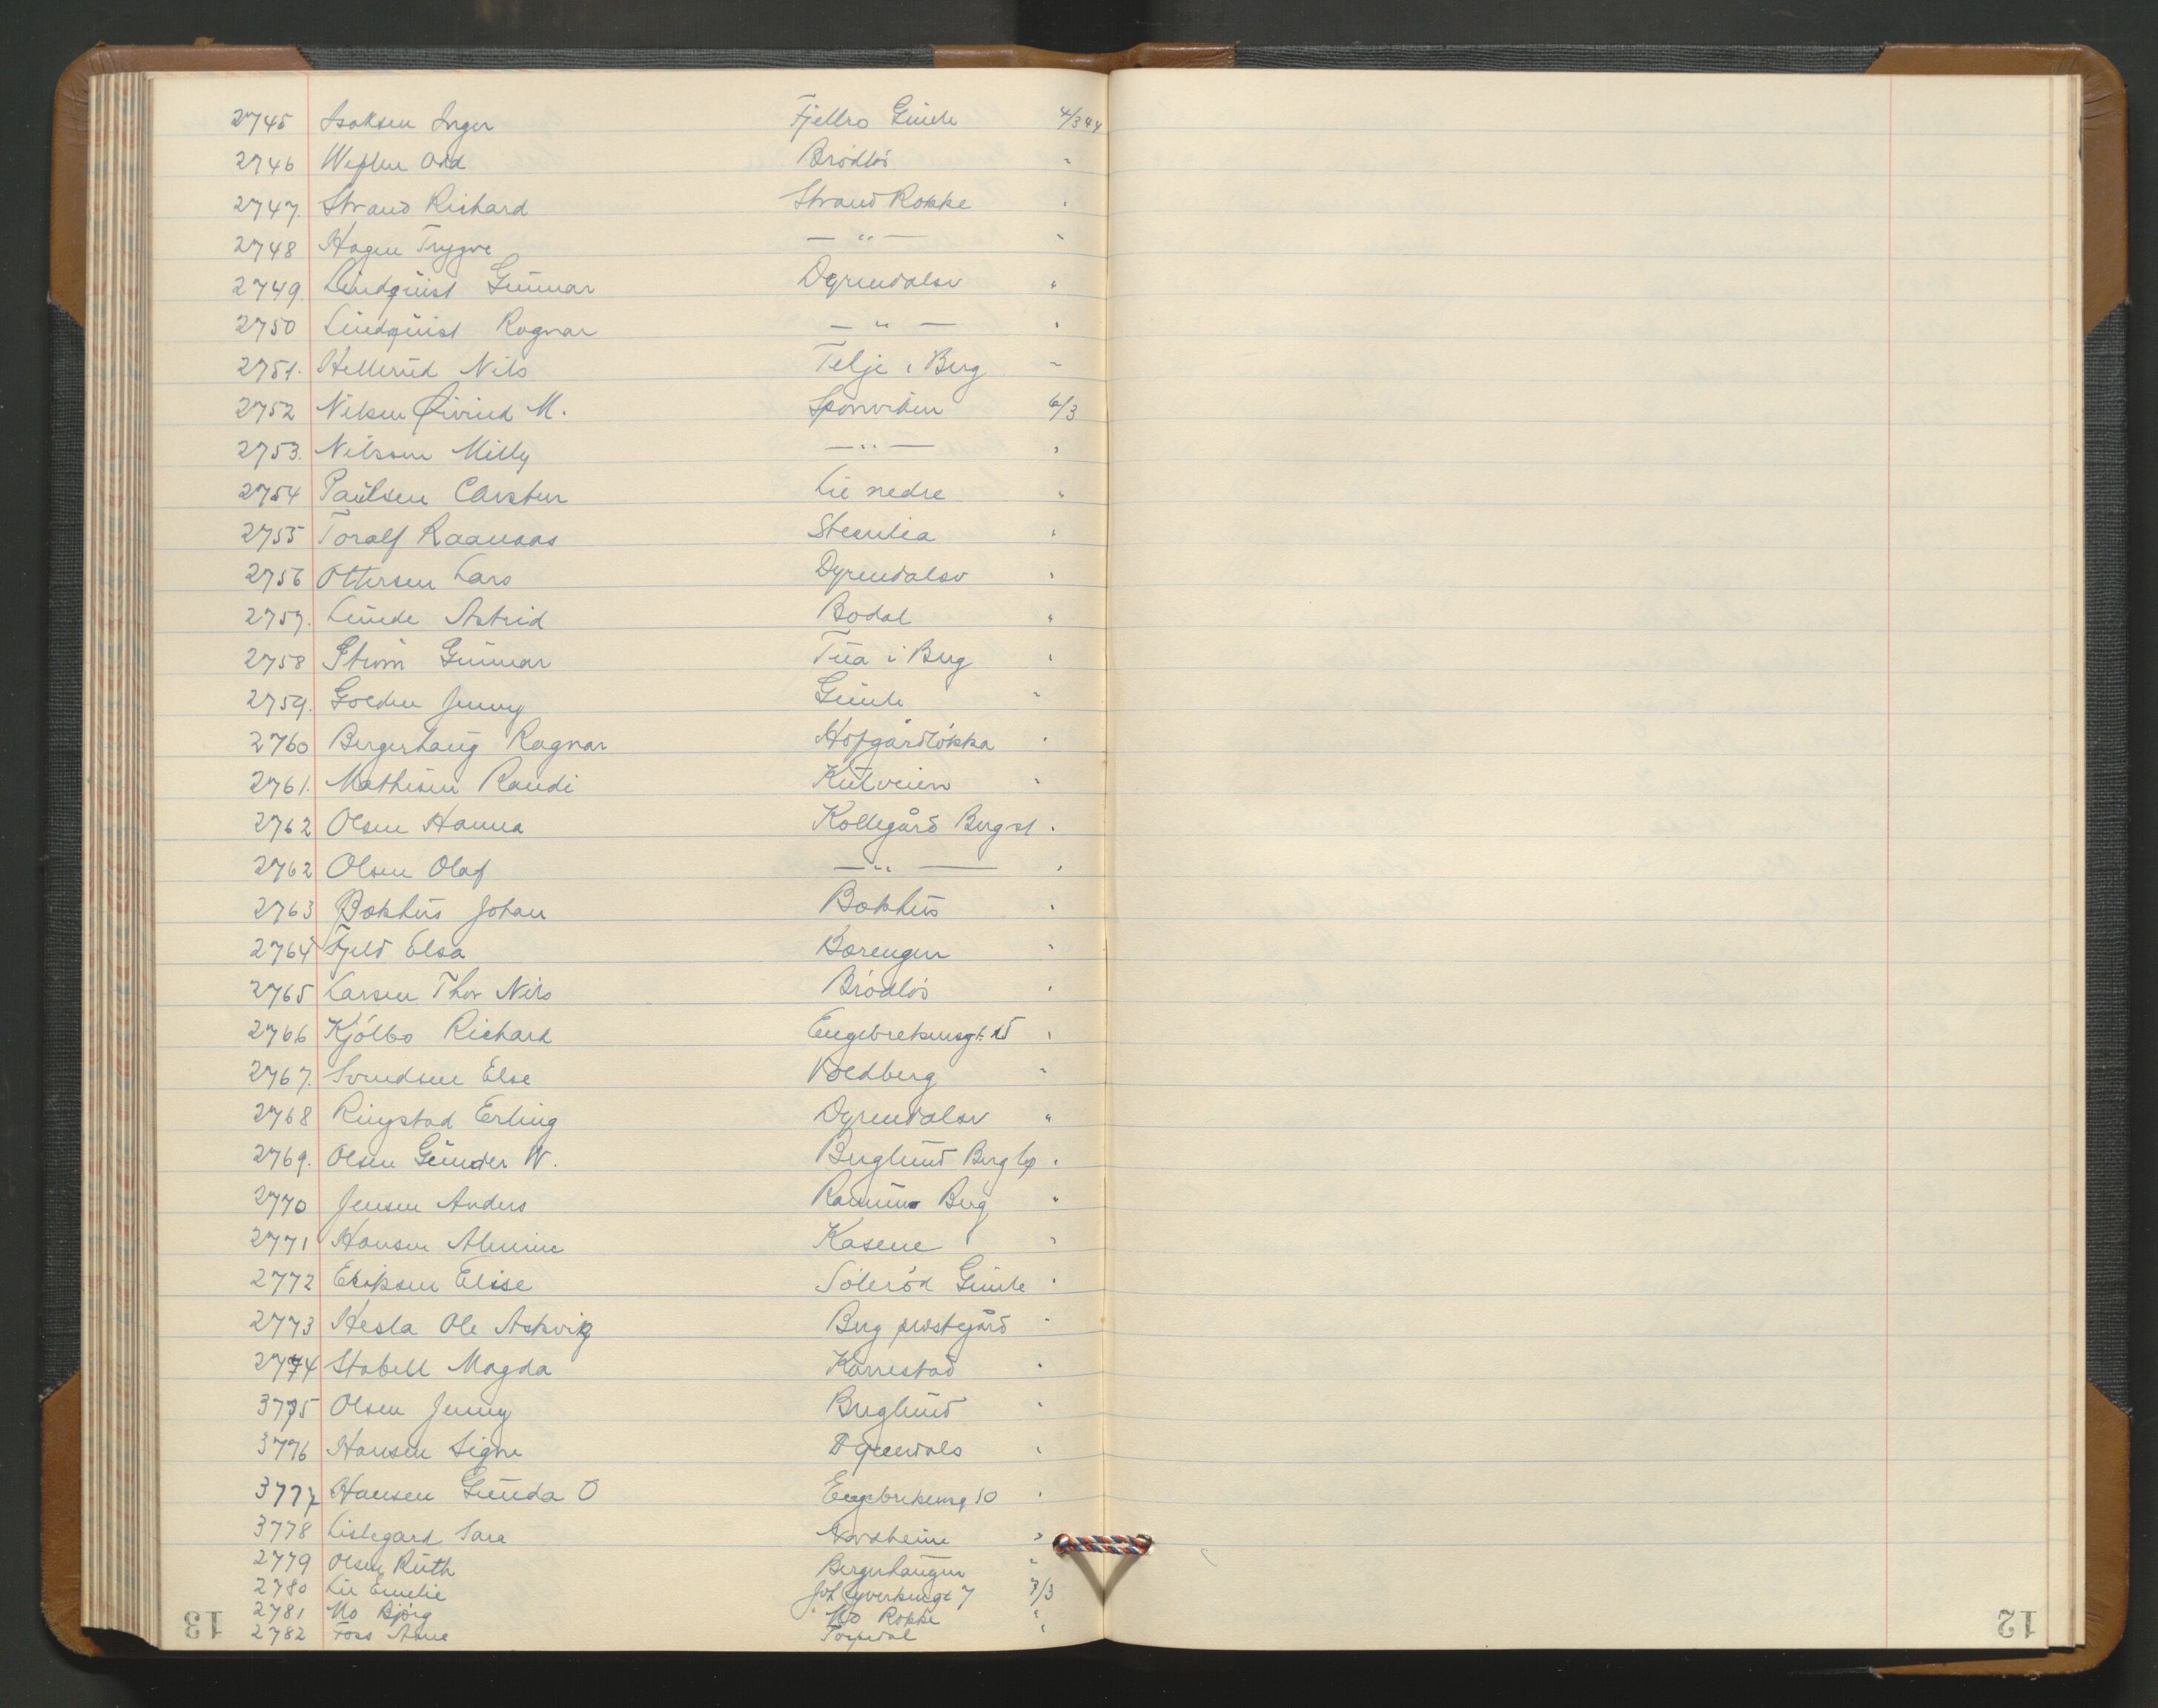 2745 Isaksen Inger Fjellro Gimle 4/3 44
2746 Odd Brödlös "
2747. Strand Richard Strand Rokke "
2748 Hagen Trygve — " — "
2749. Lindquist Gunnar Dyrendalsv "
2750 Lindquist Ragnar — " — "
2751. Hellerud Nils Telje i Berg "
2752 Nilsen Øivind M. Sponviken 6/3
2753. Nilsson Milly — " — "
2754 Paulsen Carsten Lie nedre "
2755 Toralf Raanaas Stenlia "
2756 Ottersen Lars Dyrendalsv "
2757. Linde Astrid Bødal "
2758 Strøm Gunnar i Berg "
2759. Jenny Gimle "
2760 Bergerhaug Ragnar Hofgårdlökka "
2761. Mathisen Randi Kutveien "
2762 Olsen Hanna Kollegård Berg st "
2762 Olsen Olaf — " — "
2763 Bakhus Johan Bakhus "
2764 Fjeld Elsa Borengen "
2765 Larsen Thor Nils Brödlös "
2766 Kjölbo Richard Engebretsensgt. 15 "
2767. Svendsen Else Voldberg "
2768 Ringstad Erling Dyrendalsv "
2769. Olsen Gunder W. Berglund Berg "
2770 Jensen Anders Berg "
2771 Hansen Almine Kasene "
2772 Eriksen Elise Söleröd Gimle "
2773 Hesla Ole Askvig Berg prestegård "
2774 Stabell Magda Karrestad "
3775 Olsen Jenny Berglund "
3776 Hansen Signe Dyrendals "
3777 Hansen Gunda O Engebretsensg 10 "
3778 Lislegard Sara Nordheim "
2779 Olsen Ruth Bergerhaugen "
2780 Lie Emelie Joh 7 7/3
2781 Mo Bjørg Mo Rokke "
2782 Foss Anne Torpedal "
13
12